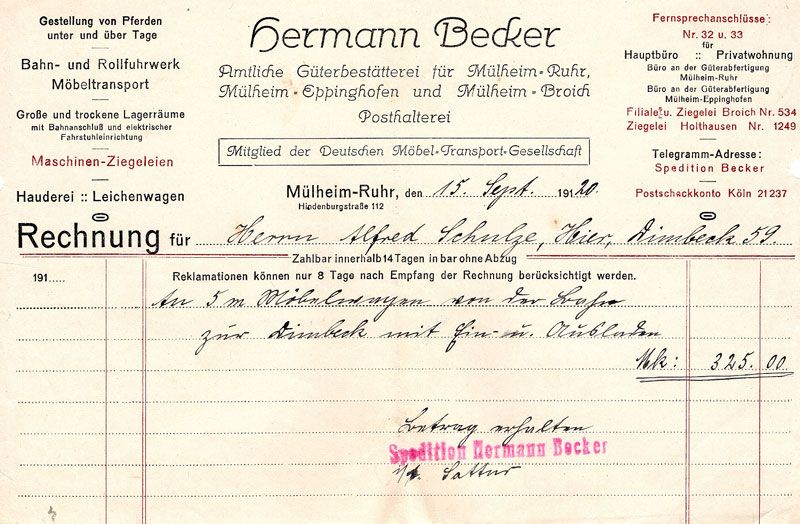 Gestellung von Pferden
unter und über Tage
Bahn- und Rollfuhrwerk
Möbeltransport
Große und trockene Lagerräume
mit Bahnanschluß und elektrischer
Fahrstuhleinrichtung
Maschinen-Ziegeleien
Hauderei :: Leichenwagen
Hermann Becker
Amtliche Güterbestätterei für Mülheim-Ruhr,
Mülheim-Eppinghofen und Mülheim-Broich
Posthalterei
Mitglied der Deutschen Möbel-Transport-Gesellschaft
Fernsprechanschlüsse:
Nr. 32 u. 33
für
Hauptbüro :: Privatwohnung
Büro an der Güterabfertigung
Mülheim-Ruhr
Büro an der Güterabfertigung
Mülheim-Eppinghofen
Filiale u. Ziegelei Broich Nr. 534
Ziegelei Holthausen Nr. 1249
Telegramm-Adresse:
Spedition Becker
Postscheckkonto Köln 21237
Mülheim-Ruhr, den 15. Sept. 1920
Hindenburgstraße 112
Rechnung für Herrn Alfred Schulze, Hier, Dimbeck 59.
Zahlbar innerhalb 14 Tagen in bar ohne Abzug
191..... Reklamationen können nur 8 Tage nach Empfang der Rechnung berücksichtigt werden.
An 5 m Möbelwagen von der Bahn
zur Dimbeck mit Ein- u. Ausladen
Mk: 325.00.
Betrag erhalten
Spedition Hermann Becker